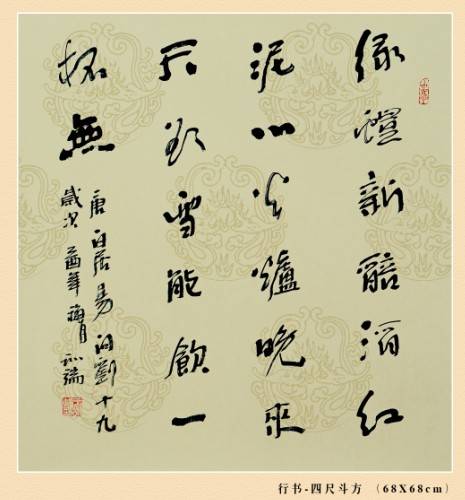 绿螘新醅酒红
泥小火爐晚來
天欲雪能飲一
杯無
唐白居易問劉十九
歲次酉年梅月
行书-四尺斗方 （68X68cm）